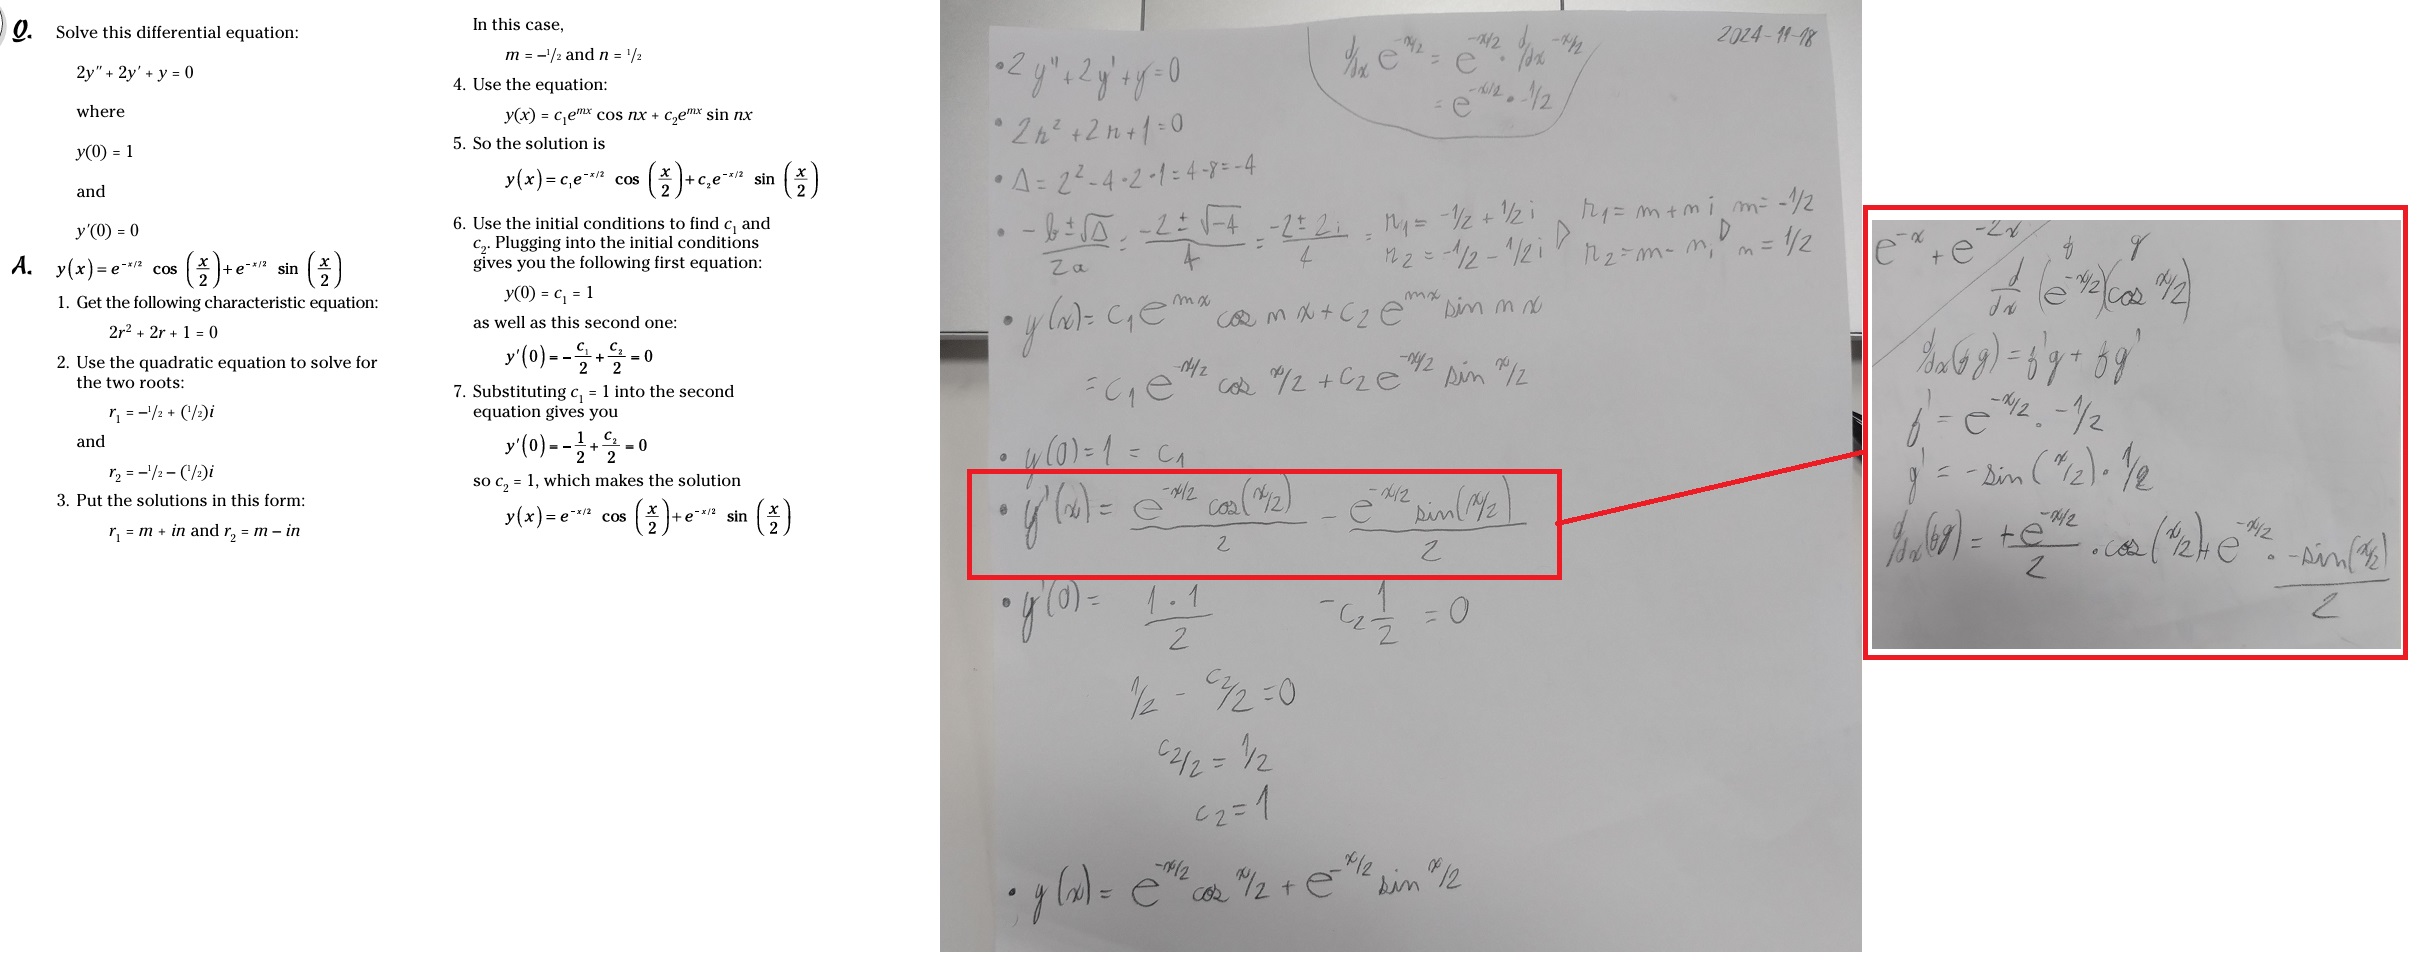 Q. Solve this differential equation:
2y″ + 2y′ + y = 0
where
y(0) = 1
and
y′(0) = 0
A. y(x) = e^(-x/2) cos (x/2) + e^(-x/2) sin (x/2)
1. Get the following characteristic equation:
2r² + 2r + 1 = 0
2. Use the quadratic equation to solve for
the two roots:
r₁ = –1/2 + (1/2)i
and
r₂ = –1/2 – (1/2)i
3. Put the solutions in this form:
r₁ = m + in and r₂ = m – in
In this case,
m = –1/2 and n = 1/2
4. Use the equation:
y(x) = c₁e^(mx) cos nx + c₂e^(mx) sin nx
5. So the solution is
y(x) = c₁e^(-x/2) cos (x/2) + c₂e^(-x/2) sin (x/2)
6. Use the initial conditions to find c₁ and
c₂. Plugging into the initial conditions
gives you the following first equation:
y(0) = c₁ = 1
as well as this second one:
y′(0) = – c₁/2 + c₂/2 = 0
7. Substituting c₁ = 1 into the second
equation gives you
y′(0) = – 1/2 + c₂/2 = 0
so c₂ = 1, which makes the solution
y(x) = e^(-x/2) cos (x/2) + e^(-x/2) sin (x/2)
2024-11-18
d/dx e^(-x/2) = e^(-x/2) · d/dx -x/2
= e^(-x/2) · -1/2
• 2y″ + 2y′ + y = 0
• 2r² + 2r + 1 = 0
• Δ = 2² - 4 · 2 · 1 = 4 - 8 = -4
• (-b ± √Δ)/2a = (-2 ± √-4)/4 = (-2 ± 2i)/4 = r₁ = -1/2 + 1/2 i ▷ r₁ = m + ni ▷ m = -1/2
r₂ = -1/2 - 1/2 i r₂ = m - ni n = 1/2
• y(x) = c₁e^(mx) cos nx + c₂e^(mx) sin nx
= c₁e^(-x/2) cos x/2 + c₂e^(-x/2) sin x/2
• y(0) = 1 = c₁
• y′(x) = e^(-x/2) cos(x/2)/2 - e^(-x/2) sin(x/2)/2
• y′(0) = 1·1/2 - c₂ 1/2 = 0
1/2 - c₂/2 = 0
c₂/2 = 1/2
c₂ = 1
• y(x) = e^(-x/2) cos x/2 + e^(-x/2) sin x/2
e^(-x) + e^(-2x)
f g
d/dx (e^(-x/2))(cos x/2)
d/dx(fg) = f′g + fg′
f′ = e^(-x/2) · -1/2
g′ = -sin(x/2) · 1/2
d/dx(fg) = +e^(-x/2)/2 · cos(x/2) + e^(-x/2) · -sin(x/2)/2